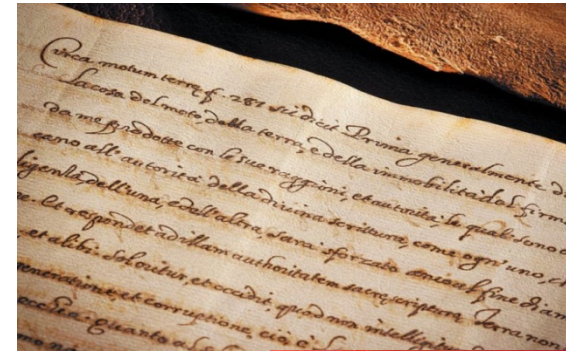 Circa motum terre f. 287 sic dicit Prima generalmente di
la cosa del moto della terra, e della immobilità del firm
da me prodotte con le sue raggioni, et autorità, le quali sono
cano all' autorità della divina scrittura, come ogn' uno, ch
ligentia dell'una, e dell'altra, sarà sforzato anco al fine di am
e. Et respondet ad illam authoritatem sacre scripture Terra non
et alibi: Sol oritur, et occidit, quod non intelligi
neratione, et corruttione, cio è
ecclia: quanto al